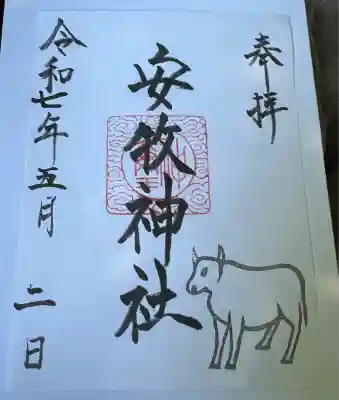 奉拝
安牧神社
令和七年五月 二日